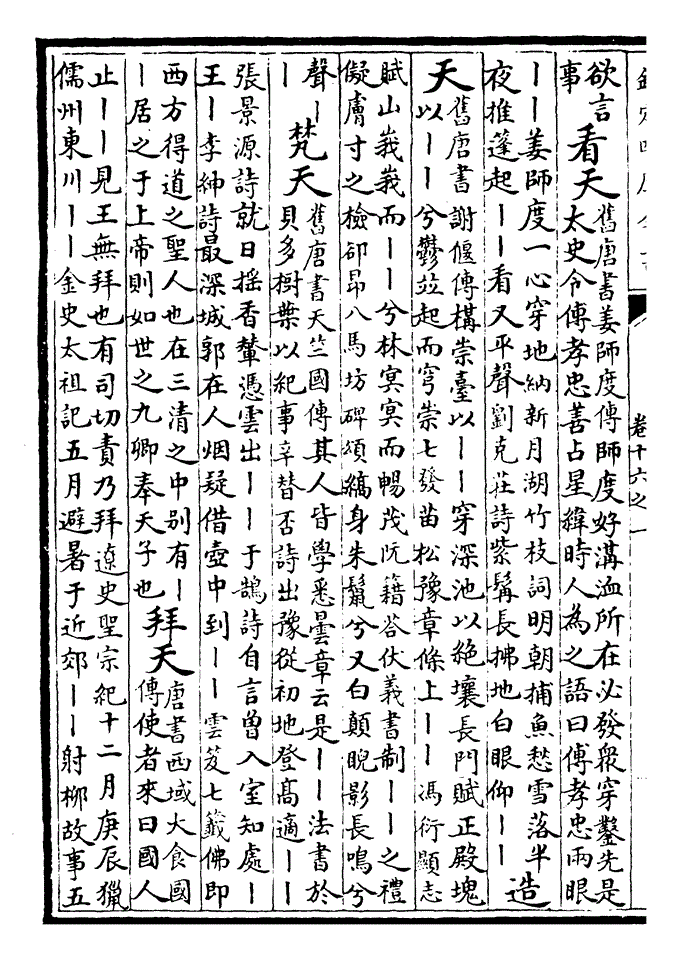 欽定四庫全書
卷十六之一
欲言
事
看天
舊唐書姜師度傳師度好溝洫所在必發衆穿鑿先是
太史令傅孝忠善占星緯時人為之語曰傅孝忠兩眼
——姜師度一心穿地納新月湖竹枝詞明朝捕魚愁雪落半
夜推蓬起——看又平聲劉克莊詩紫髯長拂地白眼仰——
造
天
舊唐書謝偃傳構崇臺以——穿深池以絕壤長門賦正殿塊
以——兮鬱竝起而穹崇七發苗松豫章條上——馮衍顯志
賦山峩峩而——兮林冥冥而暢茂阮籍荅伏義書制——之禮
儗膚寸之檢郤昂八馬坊碑頌縞身朱鬣兮又白顛睨影長鳴兮
聲—
—
梵天
舊唐書天竺國傳其人皆學悉曇章云是——法書於
貝多樹葉以紀事辛替否詩出豫從初地登高適——
張景源詩就日搖香輦憑雲出——于鵠詩自言曾入室知處—
王—李紳詩最深城郭在人烟疑借壺中到——雲笈七籤佛即
西方得道之聖人也在三清之中別有—
—居之于上帝則如世之九卿奉天子也
拜天
唐書西域大食國
傳使者來曰國人
止——見王無拜也有司切責乃拜遼史聖宗紀十二月庚辰獵
儒州東川——金史太祖記五月避暑于近郊——射柳故事五